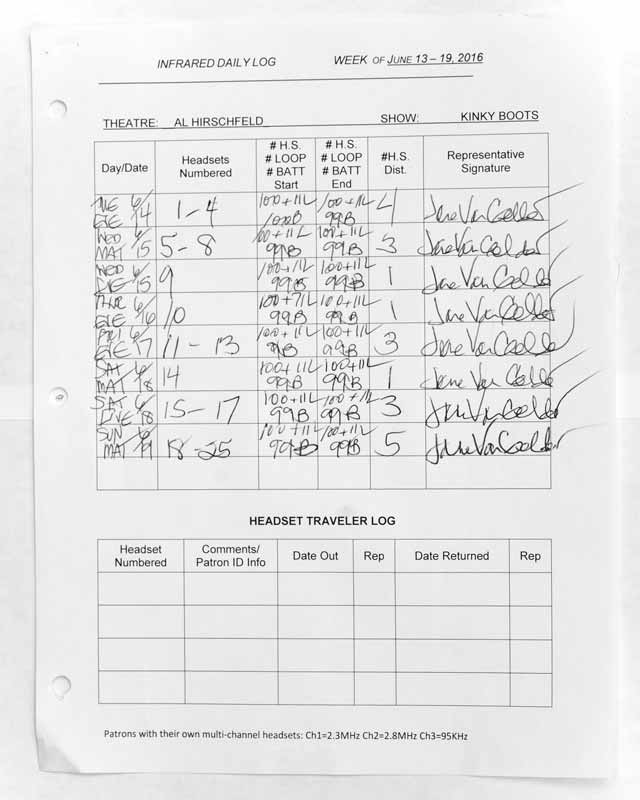 INFRARED DAILY LOG WEEK OF JUNE 13 – 19, 2016
THEATRE: AL HIRSCHFELD SHOW: KINKY BOOTS
Day/Date Headsets Numbered # H.S. # LOOP # BATT Start # H.S. # LOOP # BATT End #H.S. Dist. Representative Signature
TUE 6/14 EVE 1-4 100+11L 100B 100+11L 99B 4 Jane Van Gelder
WED 6/15 MAT 5-8 100+11L 99B 100+11L 99B 3 Jane Van Gelder
WED 6/15 EVE 9 100+11L 99B 100+11L 99B 1 Jane Van Gelder
THUR 6/16 EVE 10 100+11L 99B 100+11L 99B 1 Jane Van Gelder
FRI 6/17 EVE 11-13 100+11L 99B 100+11L 99B 3 Jane Van Gelder
SAT 6/18 MAT 14 100+11L 99B 100+11L 99B 1 Jane Van Gelder
SAT 6/18 EVE 15-17 100+11L 99B 100+11L 99B 3 Jane Van Gelder
SUN 6/19 MAT 18-25 100+11L 99B 100+11L 99B 5 Jane Van Gelder
HEADSET TRAVELER LOG
Headset Numbered Comments/ Patron ID Info Date Out Rep Date Returned Rep
Patrons with their own multi-channel headsets: Ch1=2.3MHz Ch2=2.8MHz Ch3=95KHz